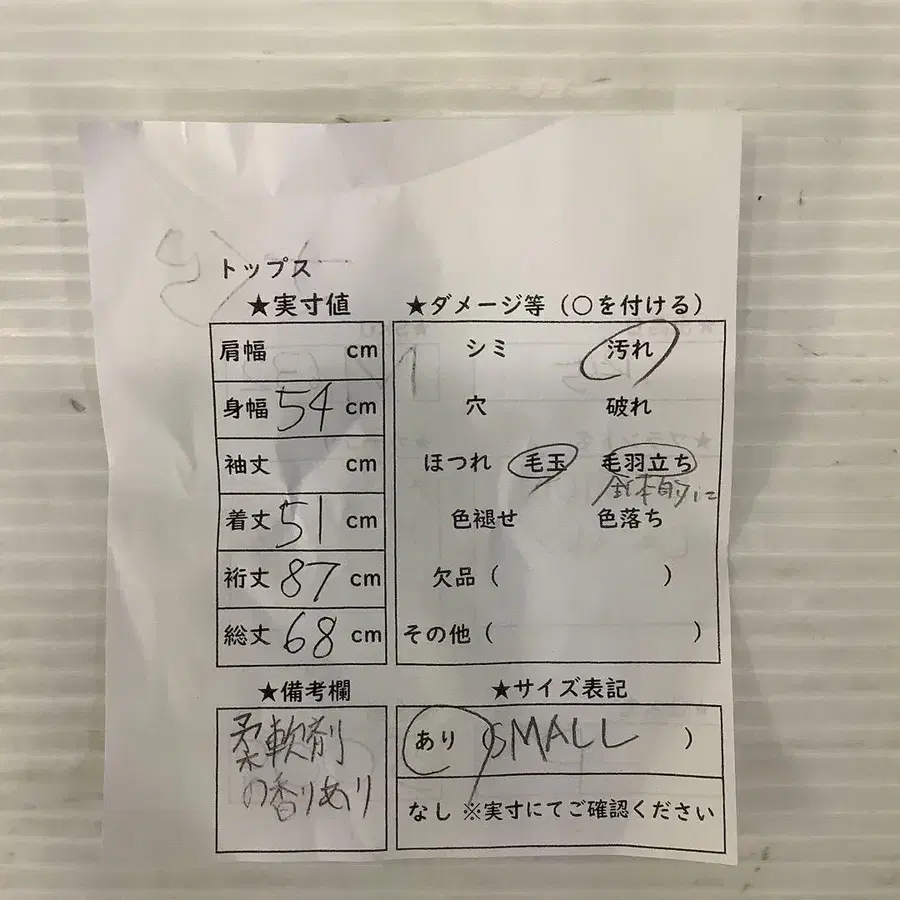 トップス
★実寸値
肩幅 cm
身幅 54 cm
袖丈 cm
着丈 51 cm
裄丈 87 cm
総丈 68 cm
★ダメージ等（○を付ける）
シミ 汚れ
穴 破れ
ほつれ 毛玉 毛羽立ち
全体的に
色褪せ 色落ち
欠品（ ）
その他（ ）
★備考欄
柔軟剤
の香りあり
★サイズ表記
あり（SMALL ）
なし ※実寸にてご確認ください